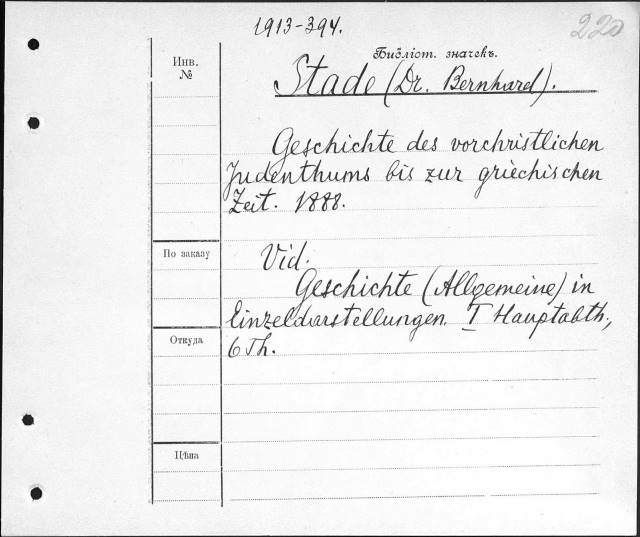 1913-394.
220
Библіот. значекъ.
Инв.
№
Stade (Dr. Bernhard).
Geschichte des vorchristlichen
Judenthums bis zur griechischen
Zeit. 1888.
По заказу
Vid.
Geschichte (Allgemeine) in
Einzeldarstellungen. I Hauptabth.,
Откуда
6 Th.
Цѣна